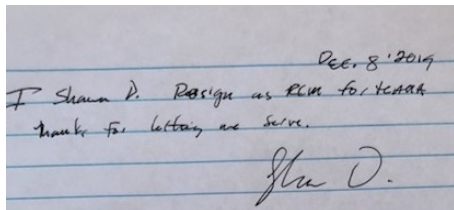 Dec. 8 '2019
I Shawn D. Resign as RCM for
thanks for letting me serve.
Sha D.